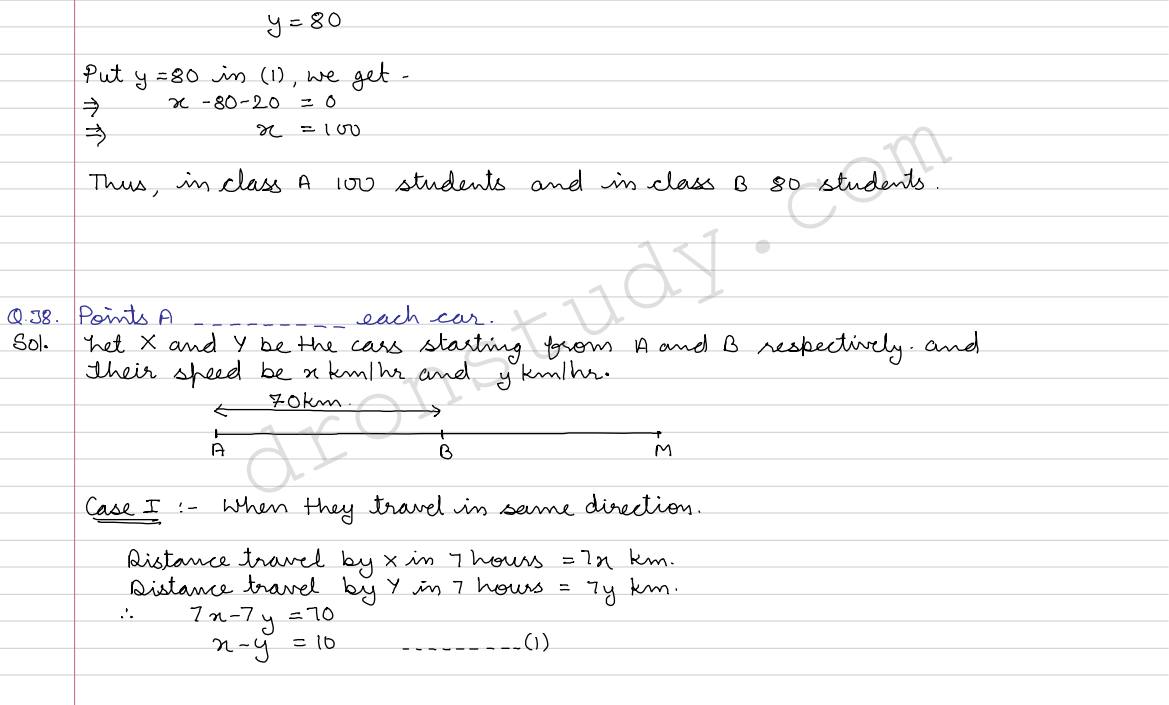 y = 80
Put y = 80 in (1), we get -
⇒ x - 80 - 20 = 0
⇒ x = 100
Thus, in class A 100 students and in class B 80 students.
Q.38. Points A _ _ _ _ _ _ _ _ _ each car.
Sol. Let X and Y be the cars starting from A and B respectively. and
their speed be x km/hr and y km/hr.
70km.
A B M
Case I :- When they travel in same direction.
Distance travel by X in 7 hours = 7x km.
Distance travel by Y in 7 hours = 7y km.
∴ 7x - 7y = 70
x - y = 10 _ _ _ _ _ _ _ _ _ (1)
dronstudy.com